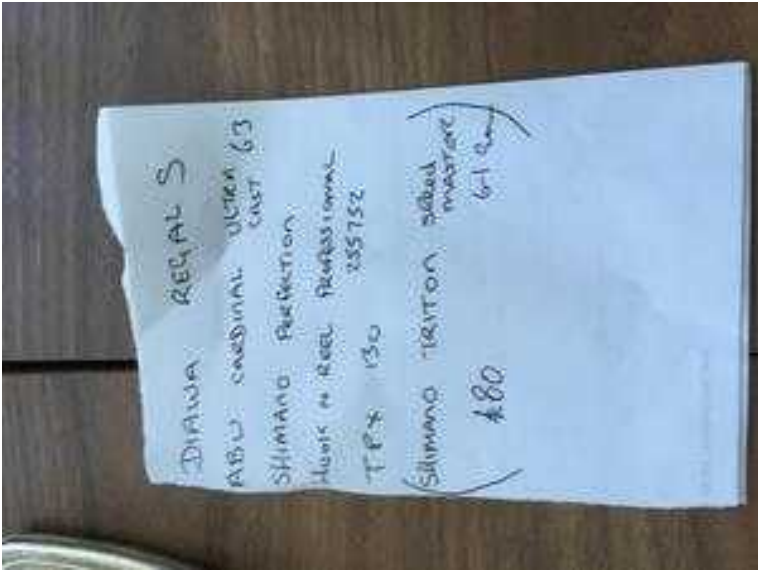 DIAWA REGAL S
ABU CARDINAL ULTRA
CAST 63
SHIMANO PERFECTION
HOOK N REEL PROFESSIONAL
255752
TPX 130
(SHIMANO TRITON speed
master)
61
£80